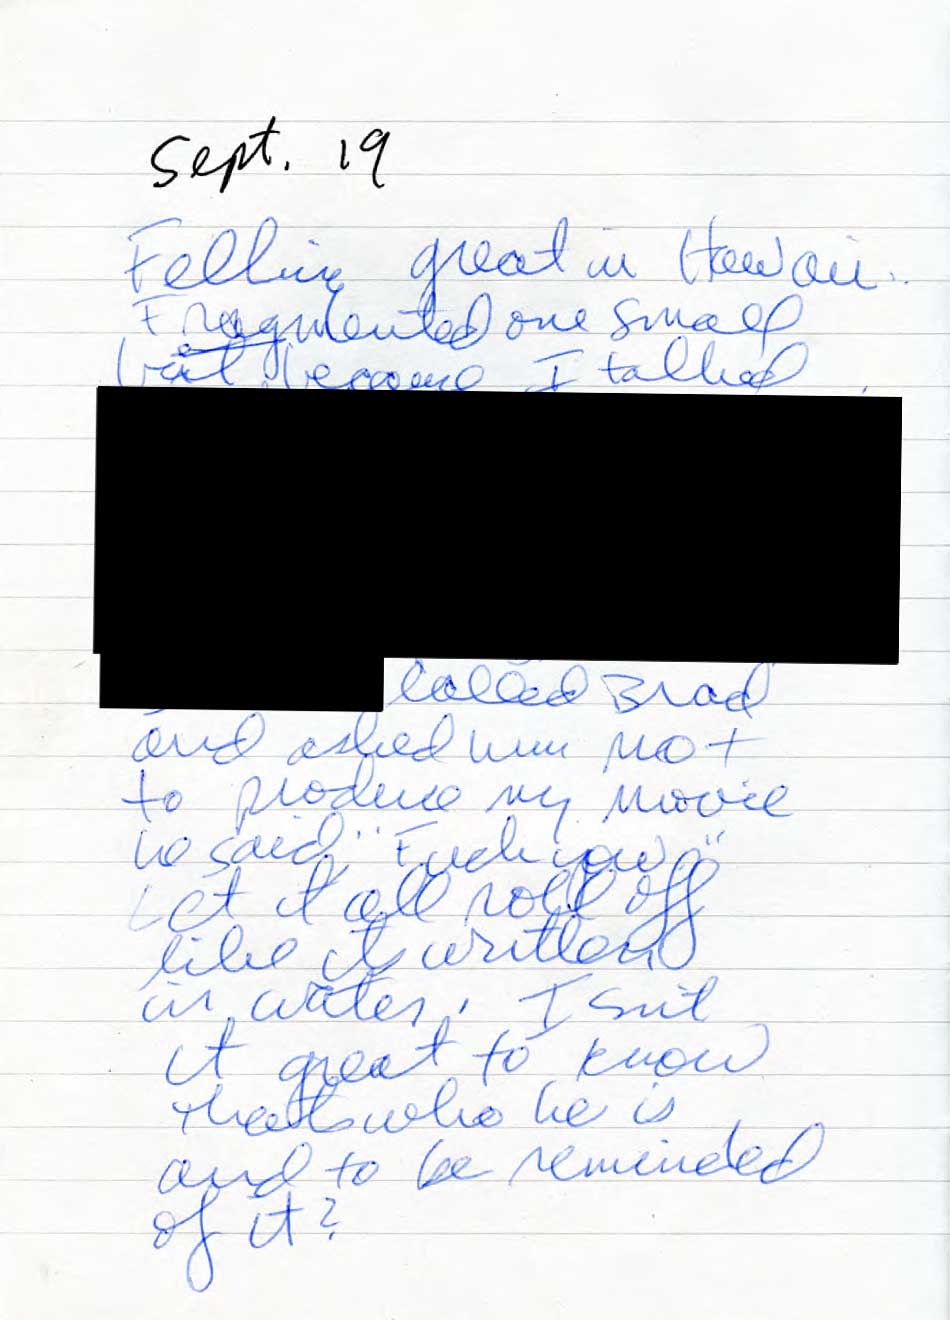 Sept. 19
Felling great in Hawaii.
Fragmented one small
bit because I talked
called Brad
and asked him not
to produce my movie
he said, "Fuck you"
Let it all roll off
like its written
in water. Isnt
it great to know
thats who he is
and to be reminded
of it?